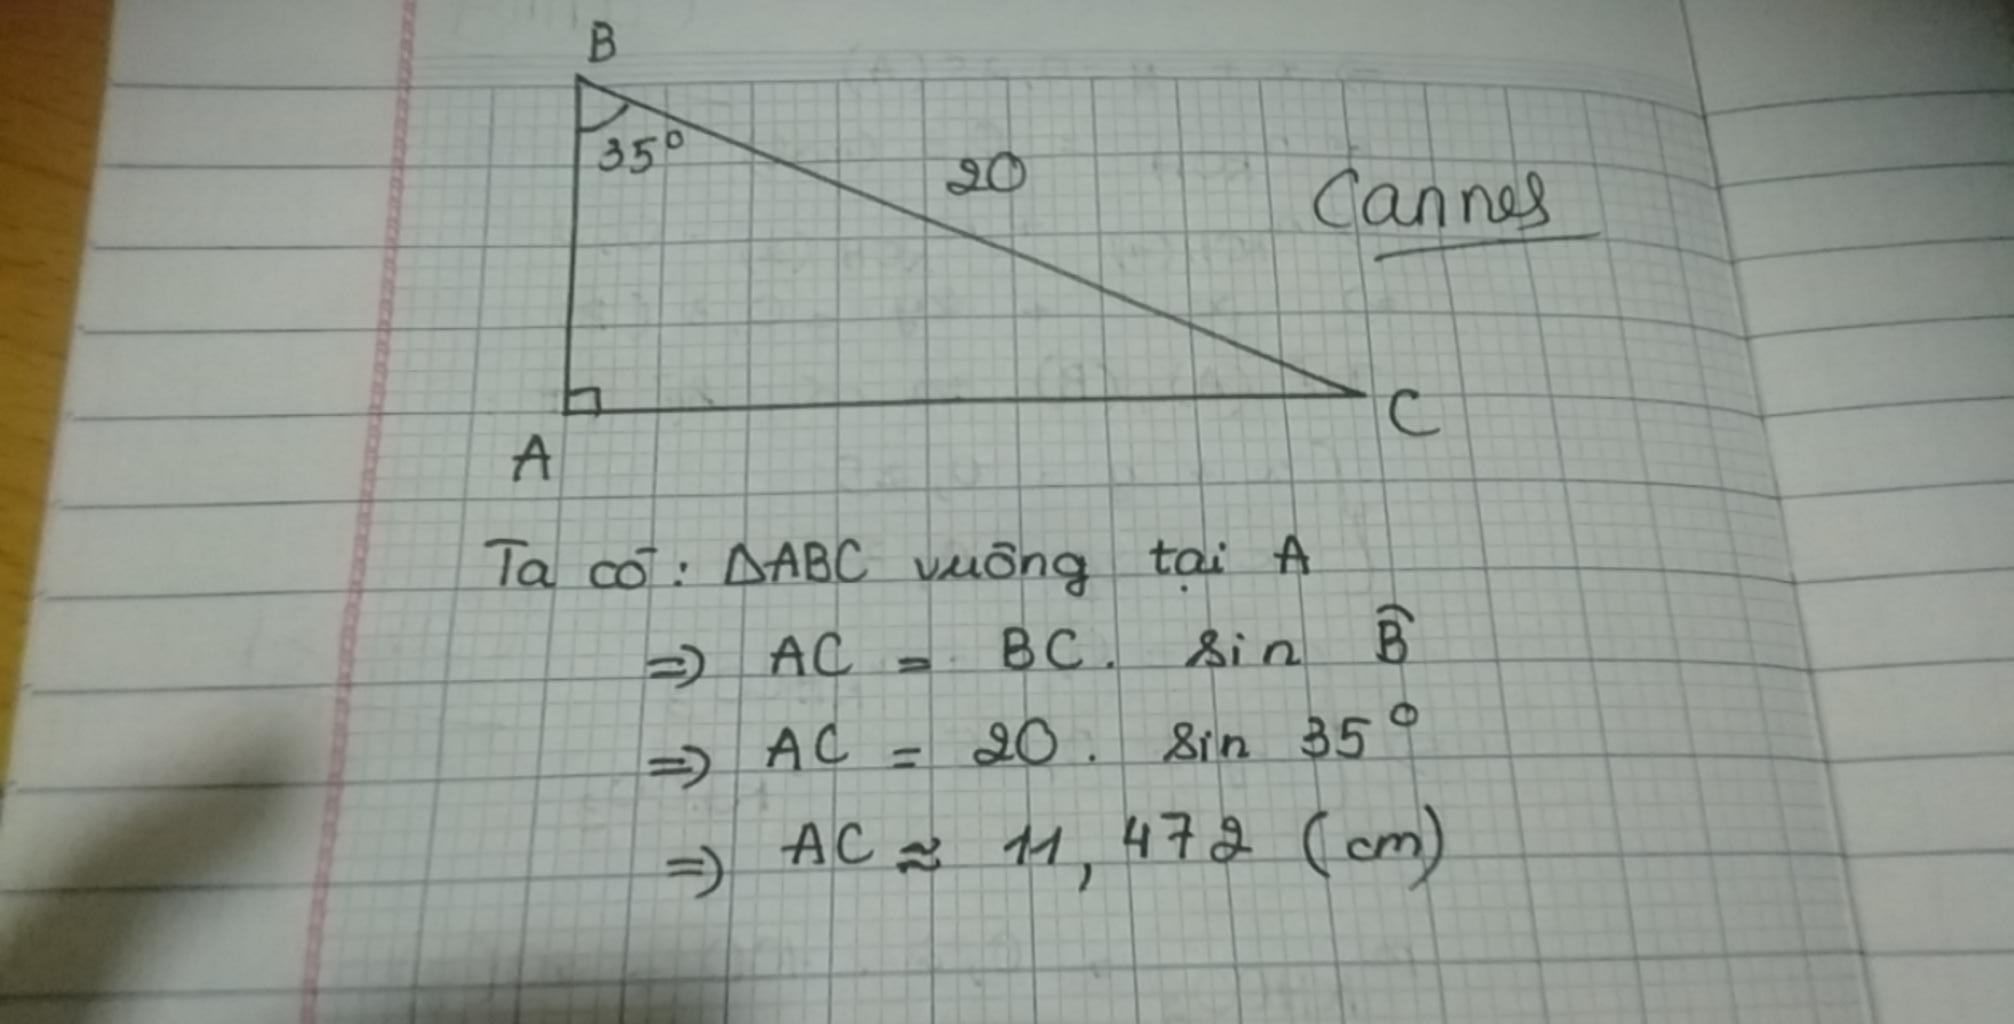 B
35°
20
Cannes
A
C
Ta có: ΔABC vuông tại A
=> AC = BC. sin B̂
=> AC = 20. sin 35°
=> AC ≈ 11,472 (cm)